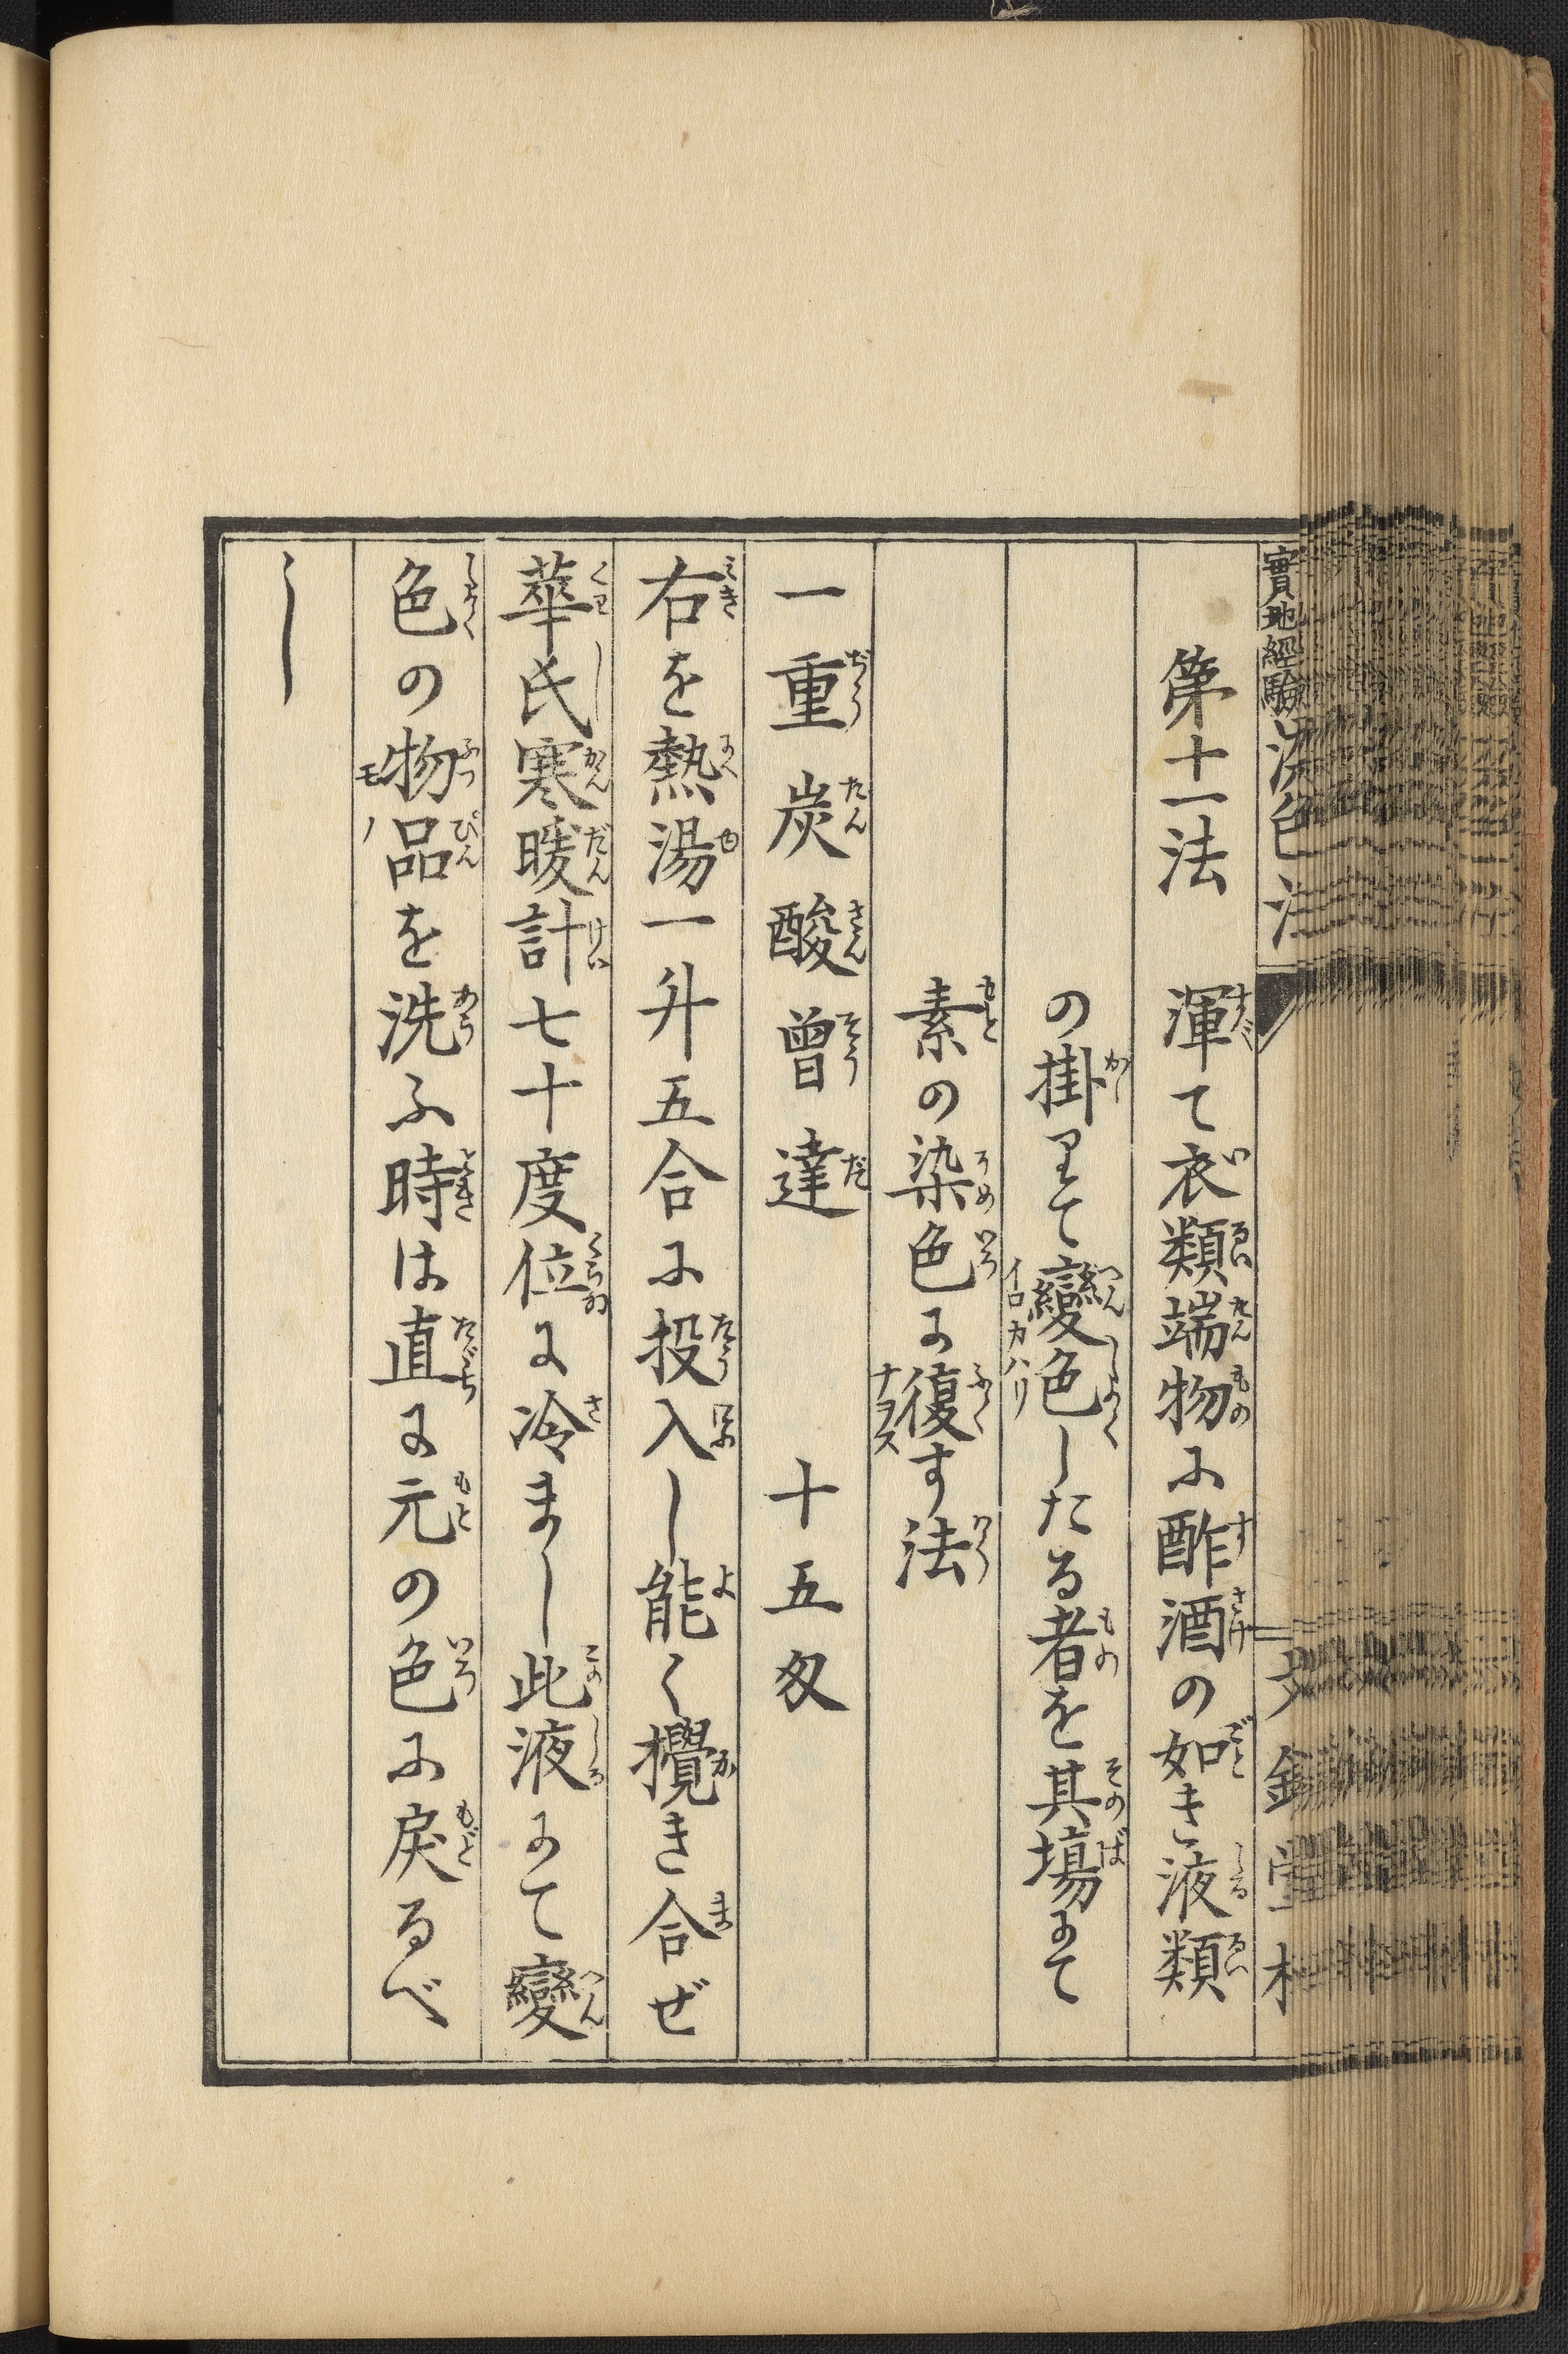 實地經驗染色法
第十一法　渾て衣類端物に酢酒の如き液類
の掛りて變色したる者を其塲にて
素の染色に復す法
一重炭酸曾達　十五匁
右を熱湯一升五合に投入し能く攪き合ぜ
華氏寒暖計七十度位に冷まし此液にて變
色の物品を洗ふ時は直に元の色に戻るべ
し